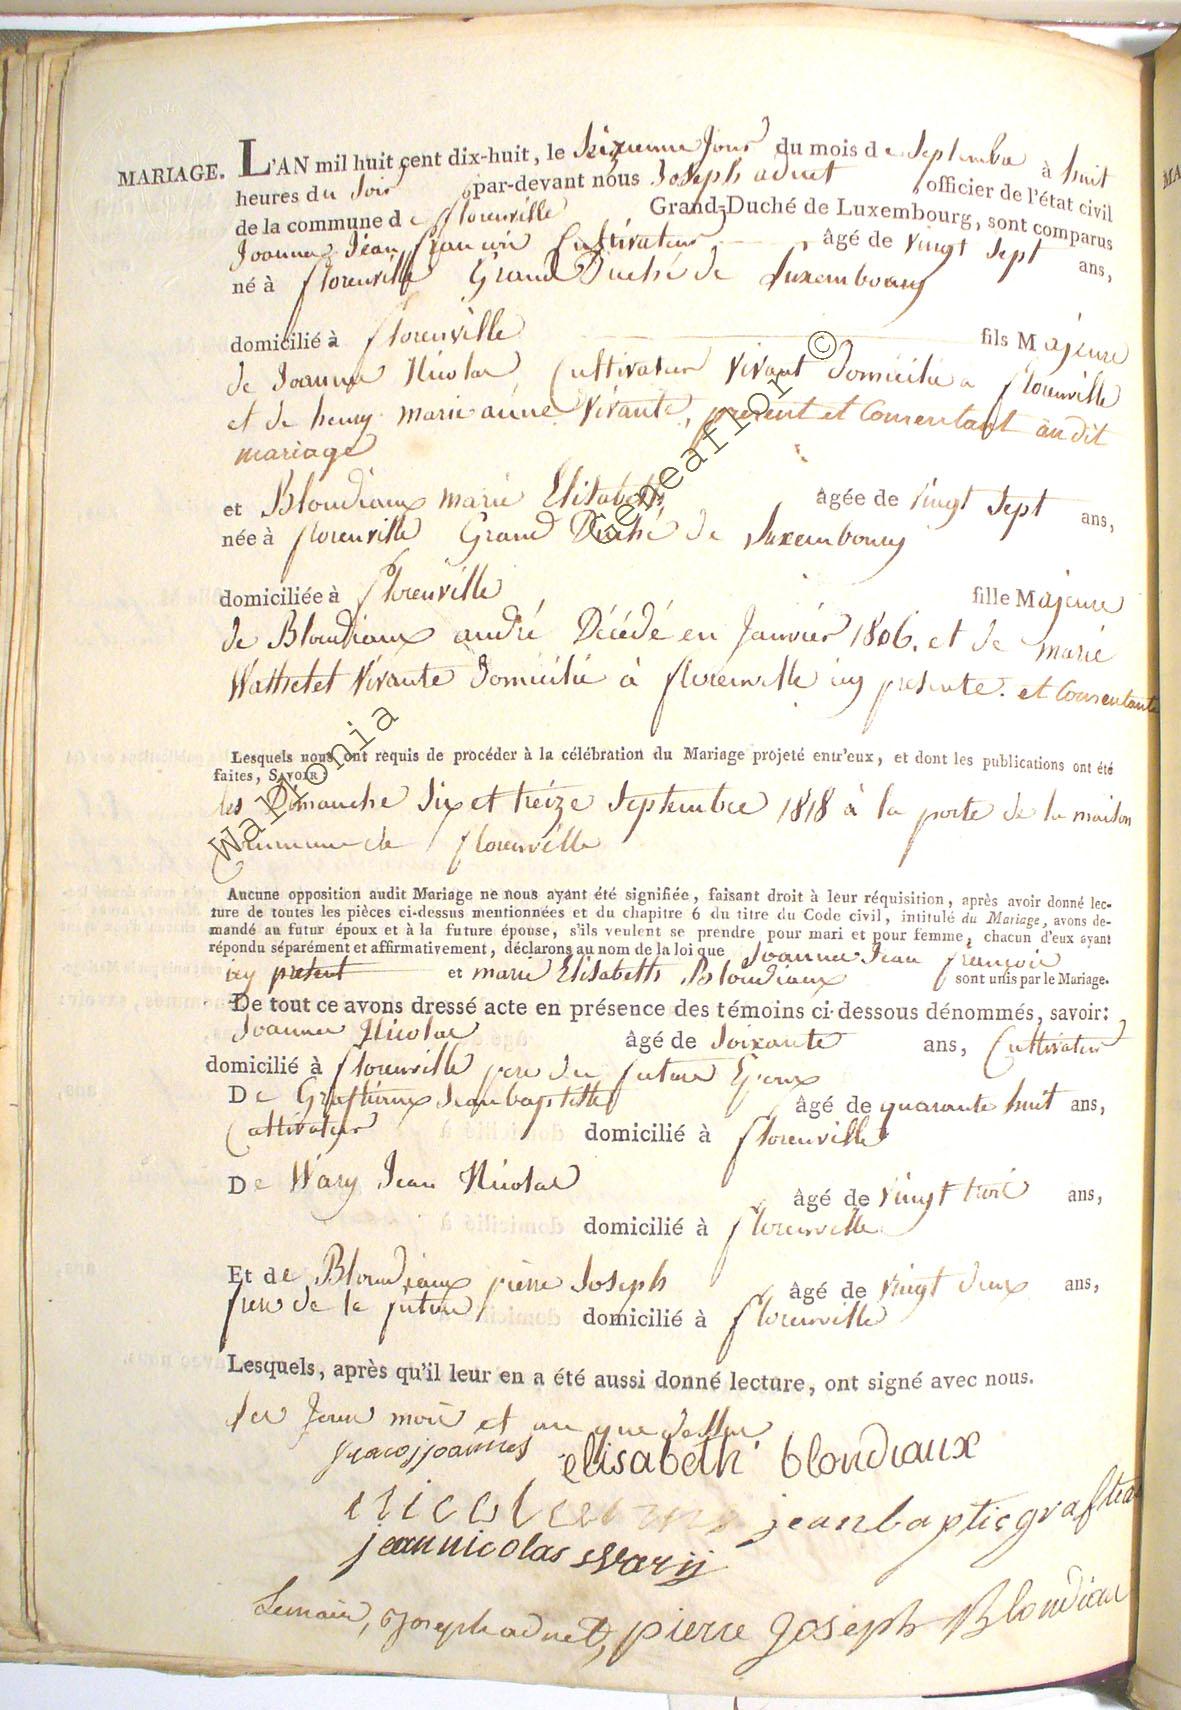 MARIAGE. L'AN mil huit cent dix-huit, le seizieme jour du mois de Septembre à huit
heures du soir par-devant nous Joseph adnet, officier de l'état civil
de la commune de florenville Grand-Duché de Luxembourg, sont comparus
Joannes Jean françois Cultivateur âgé de vingt sept ans,
né à florenville Grand Duché de Luxembourg
domicilié à florenville fils Majeure
de Joannes Nicolas Cultivateur vivant domicilié a florenville
et de henry marie anne vivante, present et Consentant au dit
mariage
et Blondiaux marie Elisabeth âgée de vingt sept ans,
née à florenville Grand Duché de Luxembourg
domiciliée à florenville fille Majeure
de Blondiaux andré Décédé en Janvier 1806. et de marie
Wathelet vivante domicilié à florenville icy presente. et Consentante
Lesquels nous ont requis de procéder à la célébration du Mariage projeté entr'eux, et dont les publications ont été
faites, SAVOIR:
les Dimanche six et treize Septembre 1818 à la porte de la maison
Commune de florenville
Aucune opposition audit Mariage ne nous ayant été signifiée, faisant droit à leur réquisition, après avoir donné lec-
ture de toutes les pièces ci-dessus mentionnées et du chapitre 6 du titre du Code civil, intitulé du Mariage, avons de-
mandé au futur époux et à la future épouse, s'ils veulent se prendre pour mari et pour femme, chacun d'eux ayant
répondu séparément et affirmativement, déclarons au nom de la loi que Joannes Jean françois
icy present et marie Elisabeth Blondiaux sont unis par le Mariage.
De tout ce avons dressé acte en présence des témoins ci-dessous dénommés, savoir:
Joannes Nicolas âgé de soixante ans, Cultivateur
domicilié à florenville pere du future Epoux
De Graftiaux Jean baptiste âgé de quarante huit ans,
Cultivateur domicilié à florenville
De Wary Jean Nicolas âgé de vingt trois ans,
domicilié à florenville
Et de Blondiaux pierre Joseph âgé de vingt deux ans,
frere de la future domicilié à florenville
Lesquels, après qu'il leur en a été aussi donné lecture, ont signé avec nous.
les Jour mois et an que dessus
joannes elisabeth blondiaux
jean baptis graftiau
jean nicolas Warij
Joseph adnet, pierre Joseph Blondiau
Wallonia Geneaflor ©